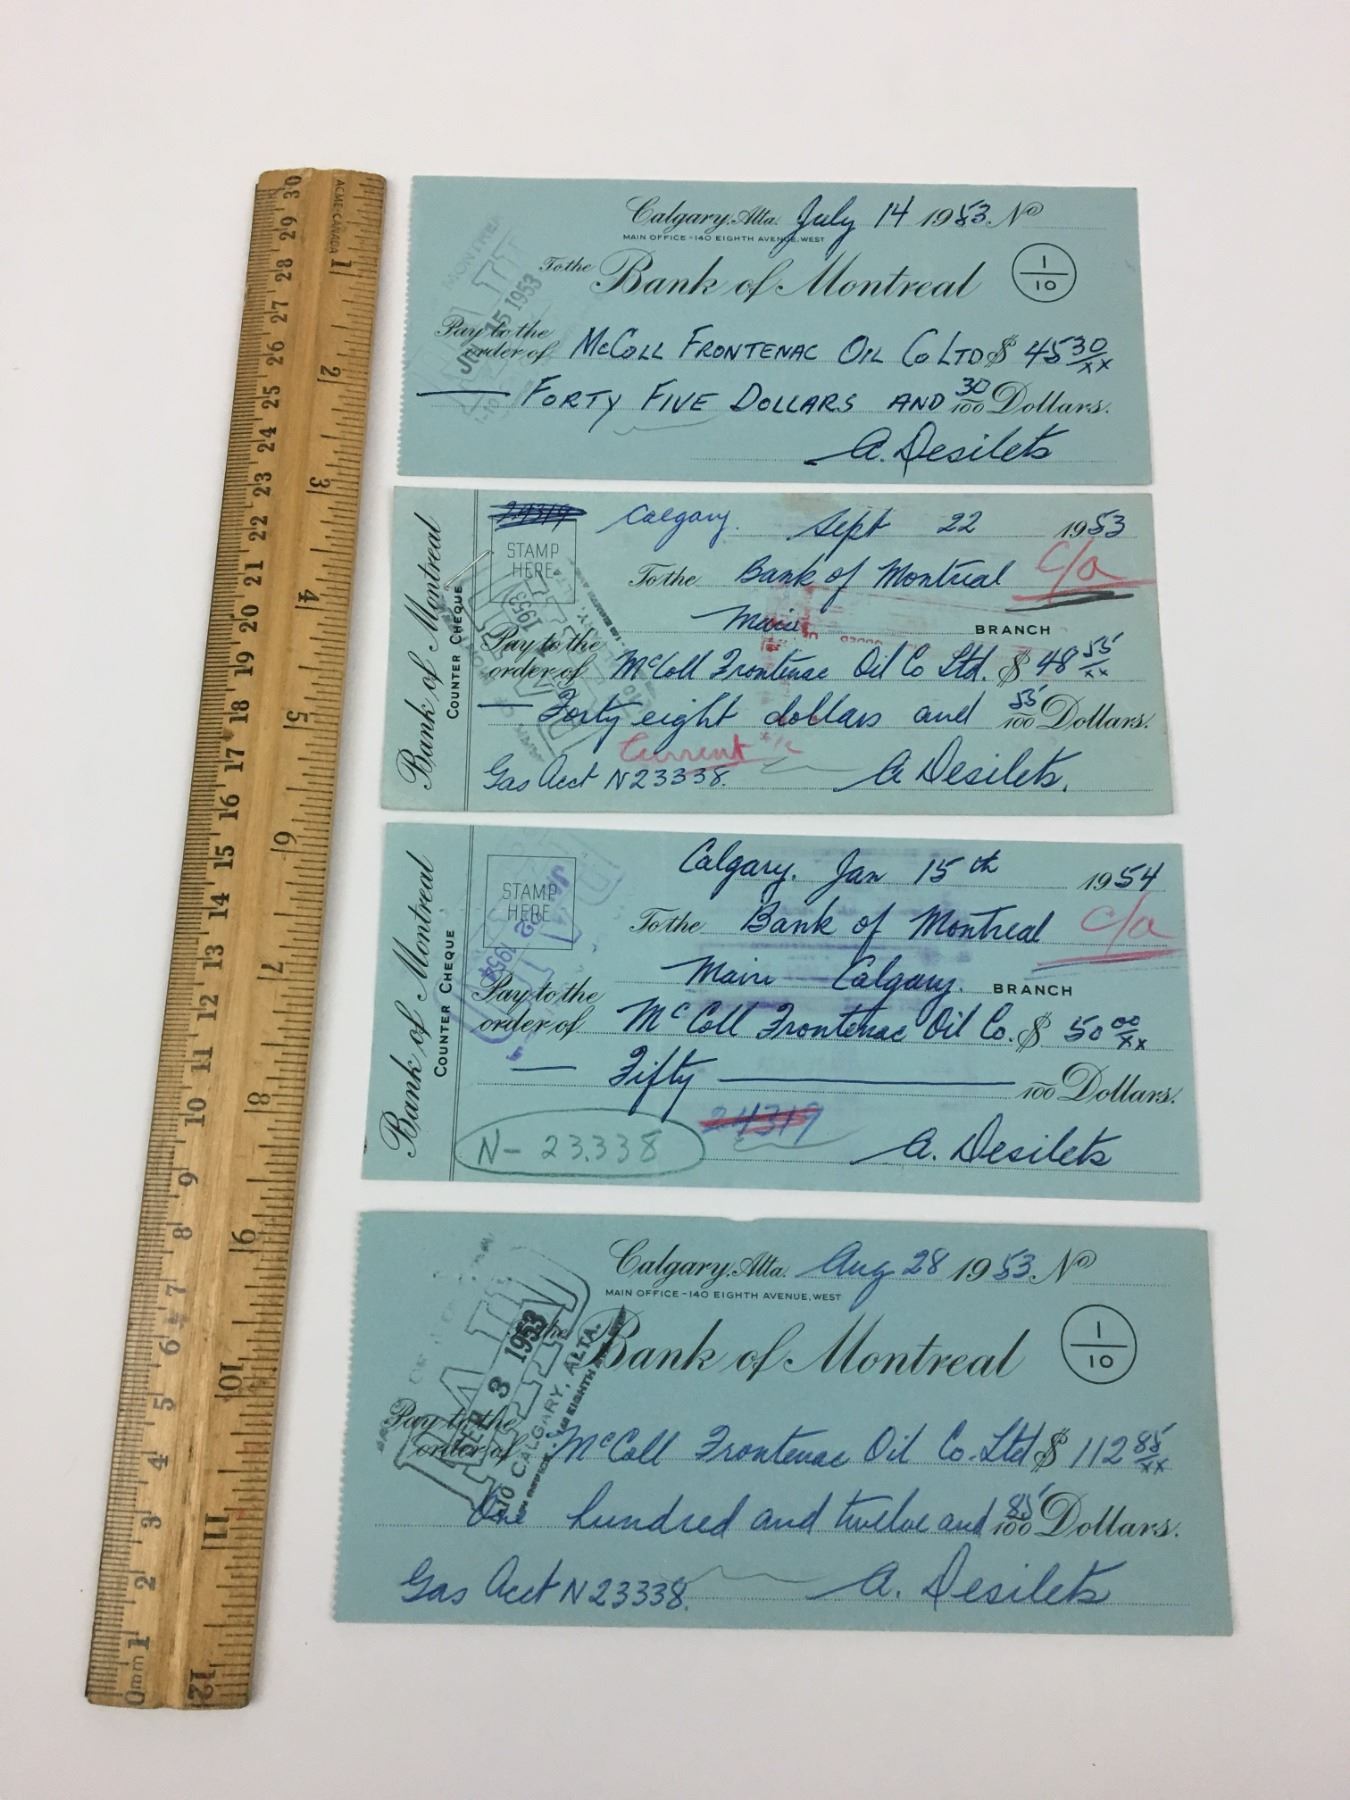 ACME-CANADA
30 29 28 27 26 25 24 23 22 21 20 19 18 17 16 15 14 13 12 11 10 9 8 7 6 5 4 3 2 1 0mm
1 2 3 4 5 6 7 8 9 10 11 12
Calgary, Alta. July 14 1953. No
MAIN OFFICE - 140 EIGHTH AVENUE, WEST
To the Bank of Montreal 1/10
15 1953
Pay to the order of McColl Frontenac Oil Co Ltd $ 45 30/xx
Forty Five Dollars and 30/100 Dollars.
A. Desilets
Bank of Montreal
COUNTER CHEQUE
24319 Calgary. Sept 22 1953
STAMP HERE
To the Bank of Montreal c/a
Main BRANCH
1953
Pay to the order of McColl Frontenac Oil Co Ltd. $ 48 55/xx
Forty eight dollars and 55/100 Dollars.
Current
Gas Acct N23338. A Desilets.
Bank of Montreal
COUNTER CHEQUE
Calgary. Jan 15th 1954
STAMP HERE
To the Bank of Montreal c/a
Main Calgary. BRANCH
22 1954
Pay to the order of McColl Frontenac Oil Co. $ 50 00/xx
Fifty 100 Dollars.
24319
N- 23.338 A. Desilets
Calgary, Alta. Aug 28 1953 No
MAIN OFFICE - 140 EIGHTH AVENUE, WEST
the Bank of Montreal 1/10
PAID
SEP 3 1953
CALGARY, ALTA.
Pay to the order of McColl Frontenac Oil Co. Ltd $ 112 85/xx
One hundred and twelve and 85/100 Dollars.
Gas Acct N23338. A. Desilets